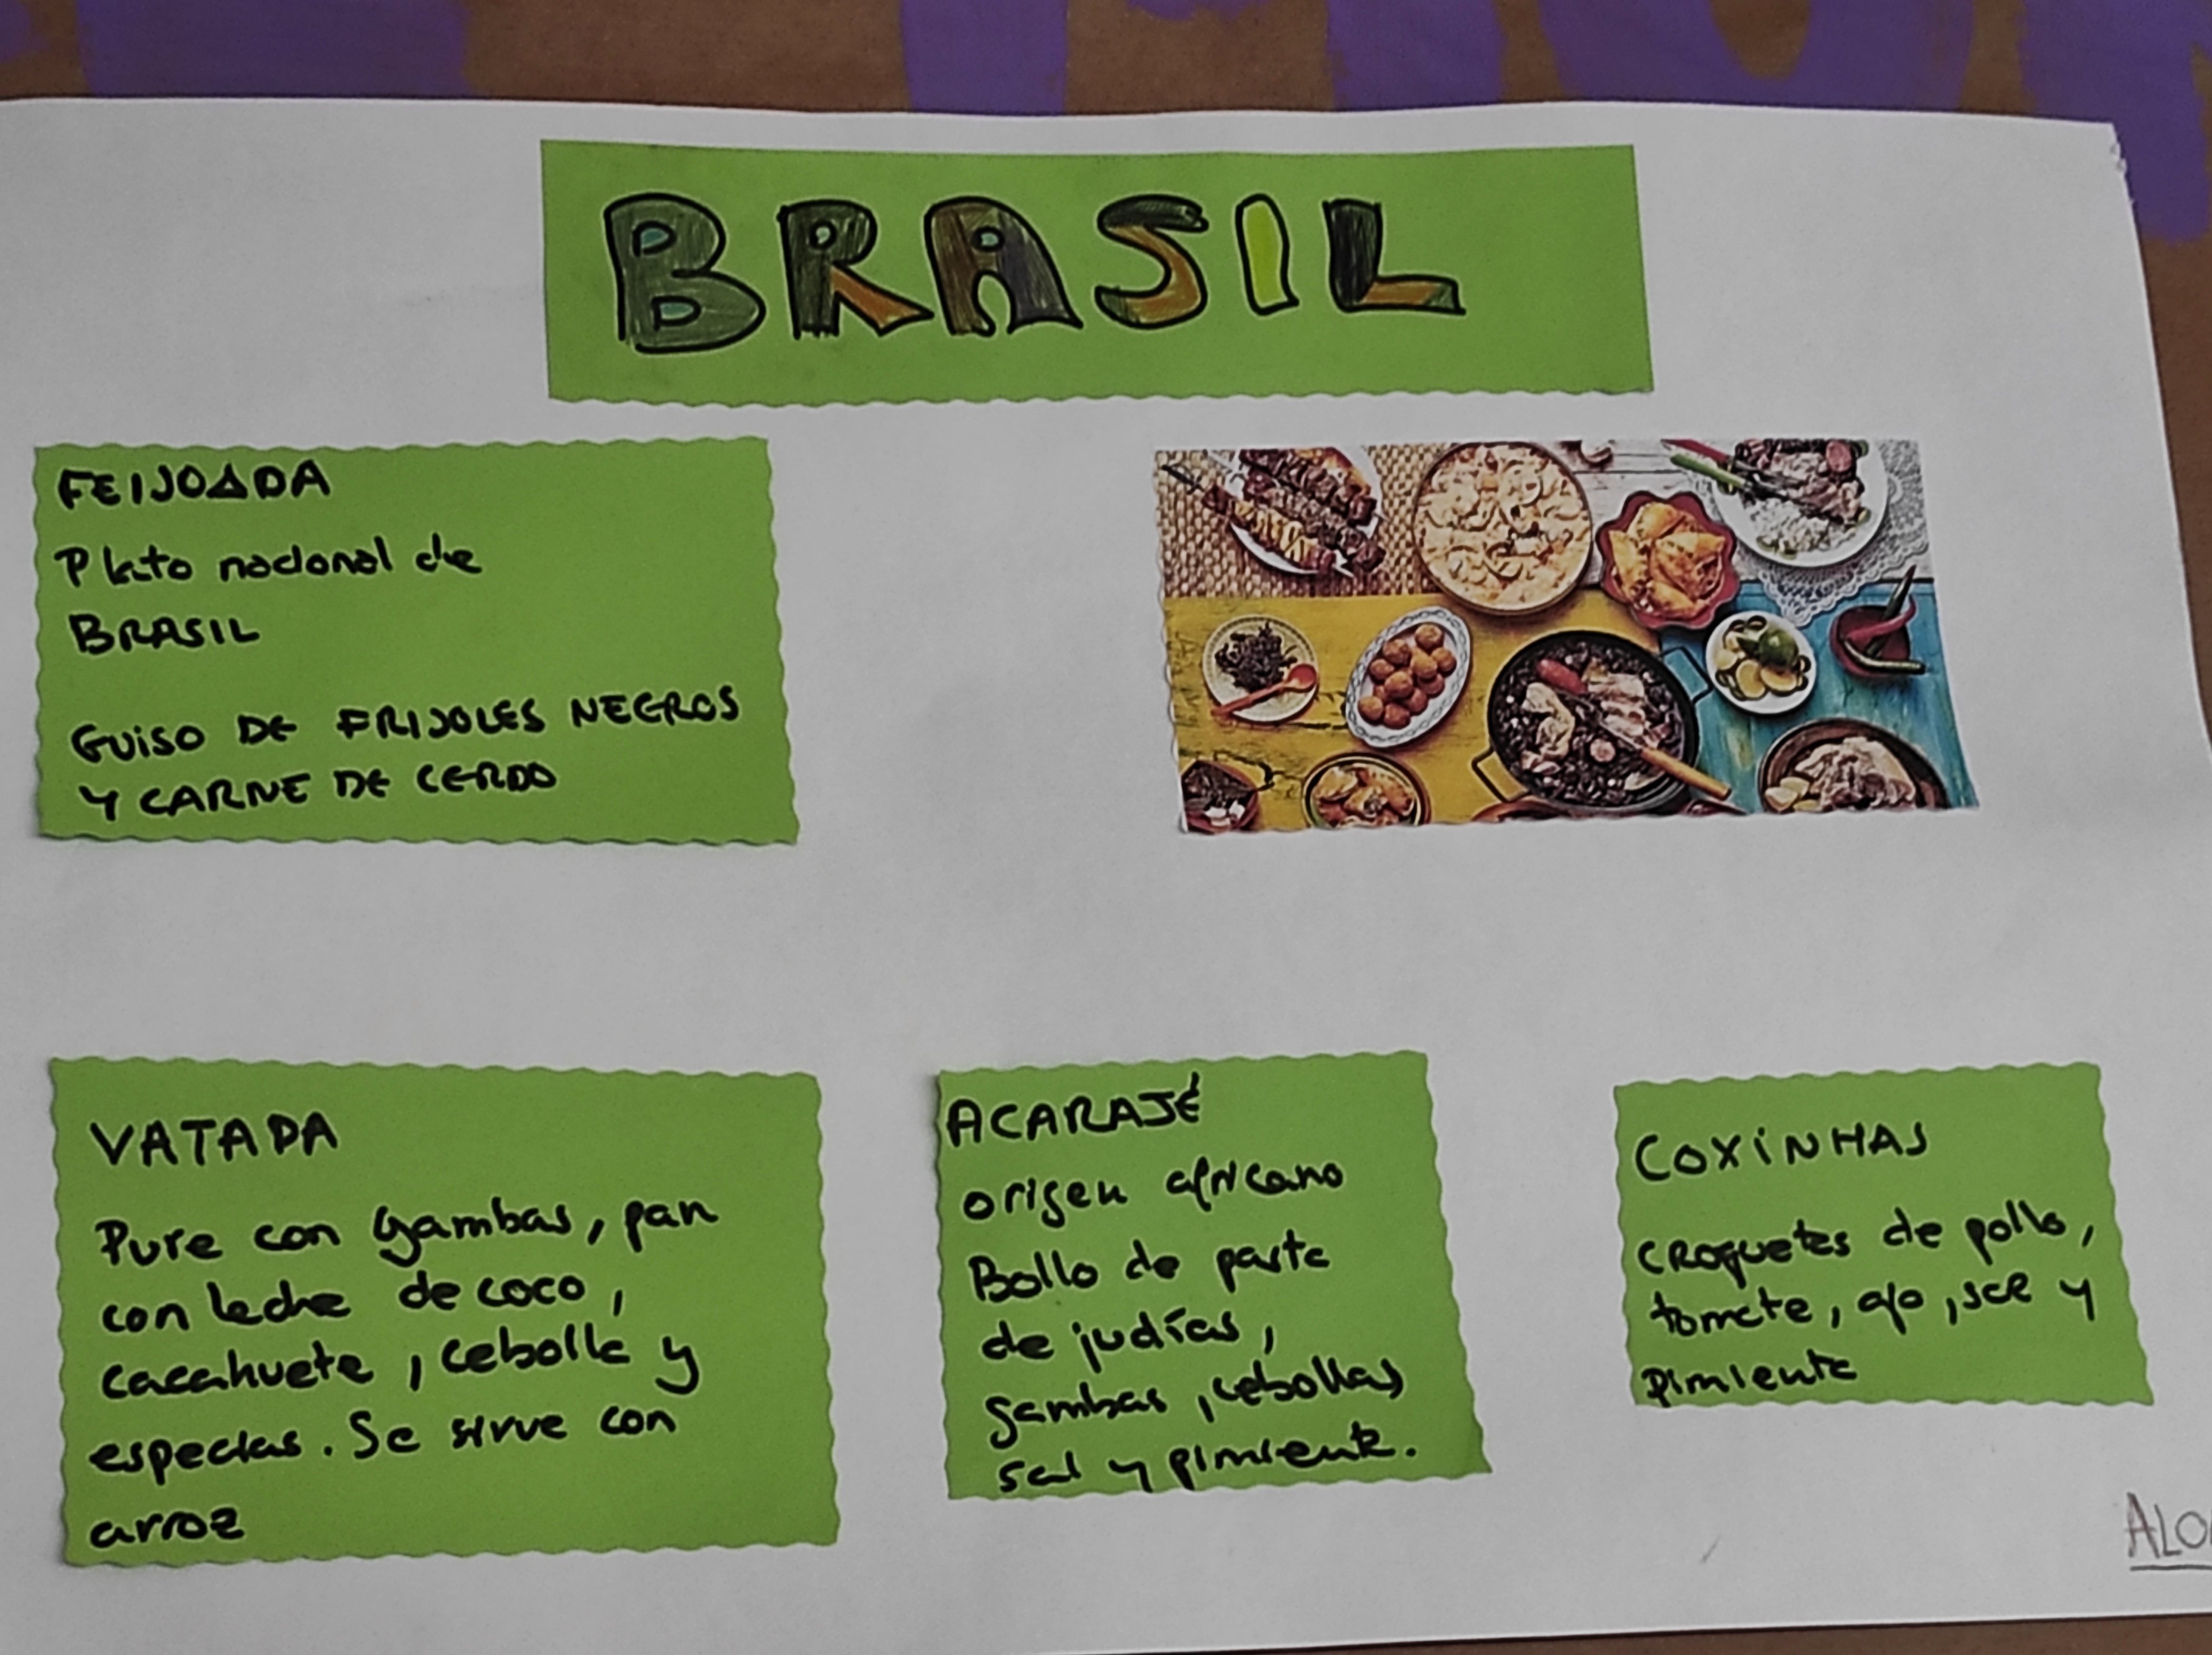 BRASIL
FEIJOADA
Plato nacional de
BRASIL
GUISO DE FRIJOLES NEGROS
Y CARNE DE CERDO
VATAPA
Pure con gambas, pan
con leche de coco,
cacahuete, cebolla y
especias. Se sirve con
arroz
ACARAJÉ
origen africano
Bollo de pasta
de judías,
gambas, cebollas
sal y pimienta.
COXINHAS
CROquetas de pollo,
tomate, ajo, sal y
pimienta
ALO